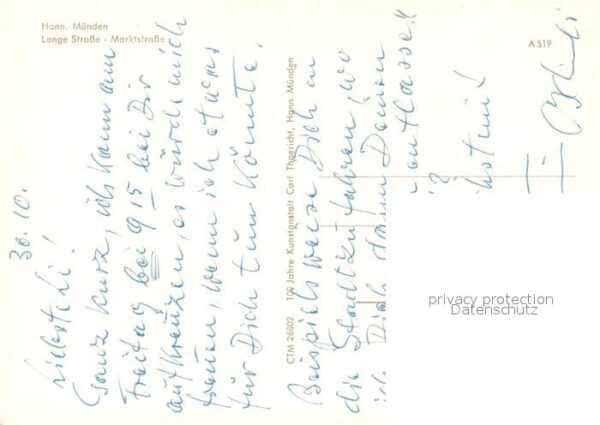 Hann. Münden
Lange Straße - Marktstraße
A 519
30.10.
Liebste Li!
Ganz kurz, ich kann am
Freitag bei 9 15 bei Dir
aufkreuzen, es würde mich
freuen, wenn ich etwas
für Dich tun könnte.
CTM 26802 100 Jahre Kunstanstalt Carl Thoericht, Hann. Münden
Beispielsweise Dich in
die Stadt zu fahren, wo
ich Dich dann Deinen
entlasse!
?
privacy protection
Datenschutz